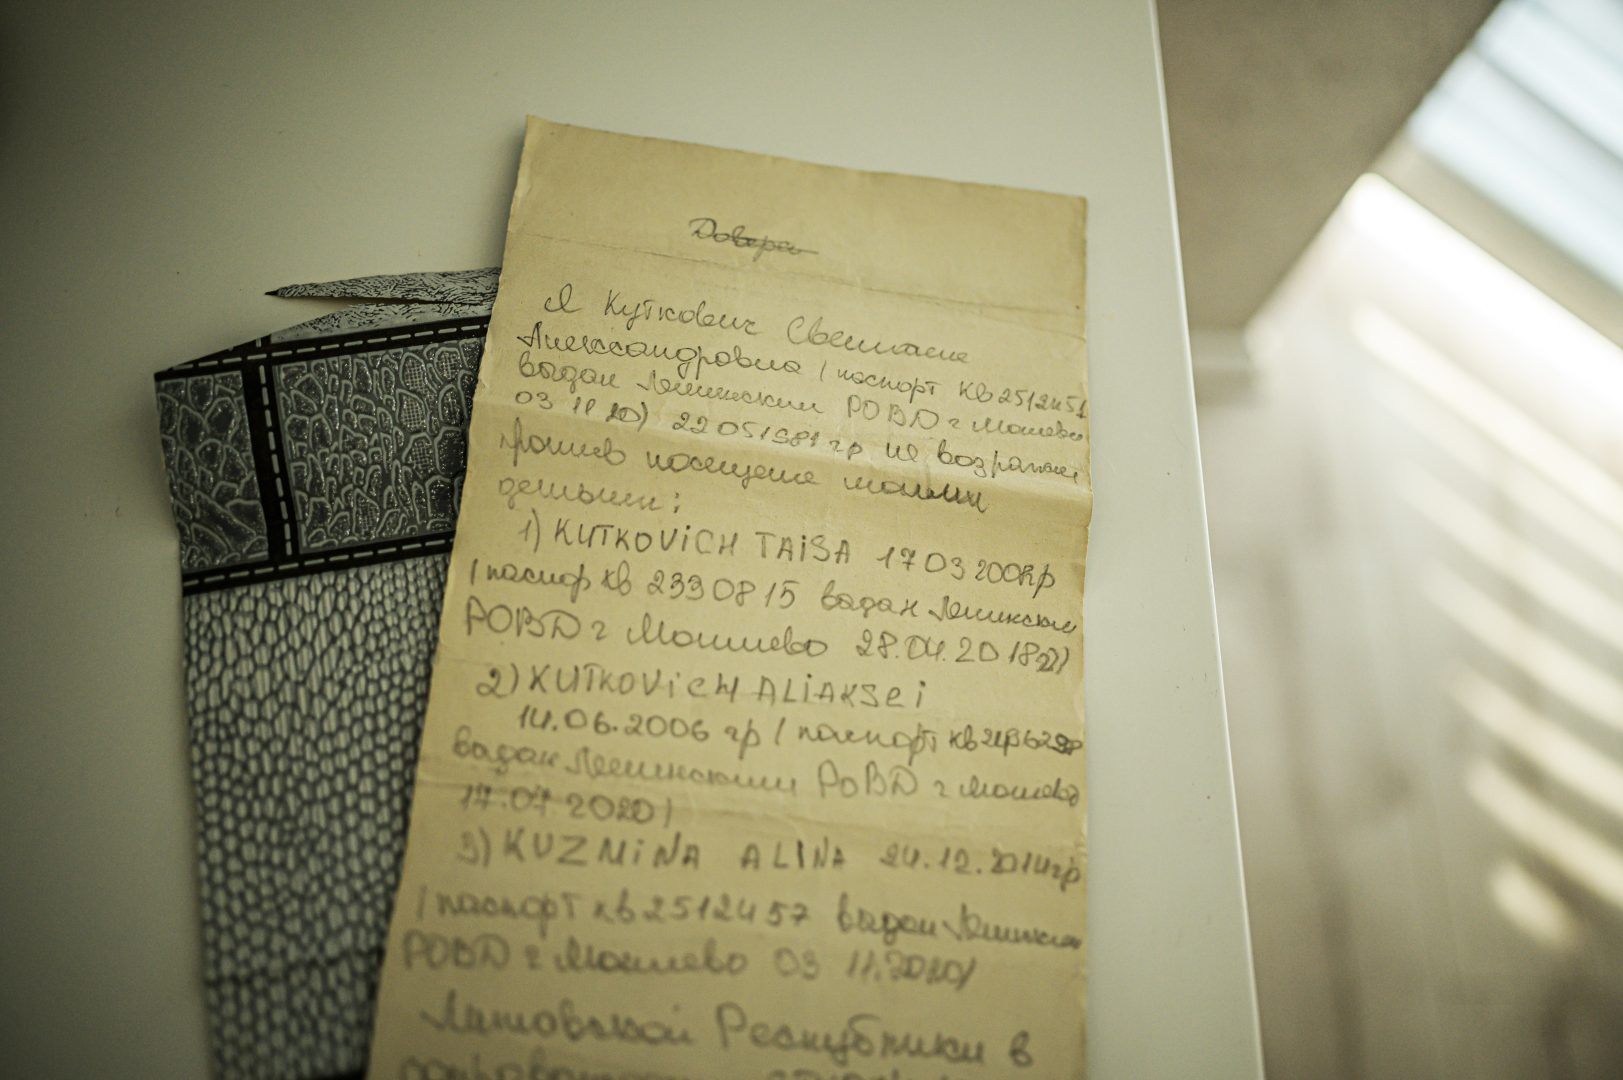 Довера
Я Куткович Светлана
Александровна (паспорт КВ2512451
выдан Ленинским РОВД г Могилево
03 11 20) 22051981 гр не возражаю
против посещение моими
детьми:
1) KUTKOViCH TAiSA 17 03 2002гр
(паспор КВ 2330815 выдан Ленинским
РОВД г Могилево 28.04.2018
2) KUTKOViCH ALiAKSEi
14.06.2006 гр (паспорт КВ
выдан Ленинским РОВД г Могилево
17.07 2020)
3) KUZMiNA ALINA 24.12.2014гр
(паспорт КВ2512457 выдан Ленинским
РОВД г Могилево 03 11.2020)
Литовской Республики в